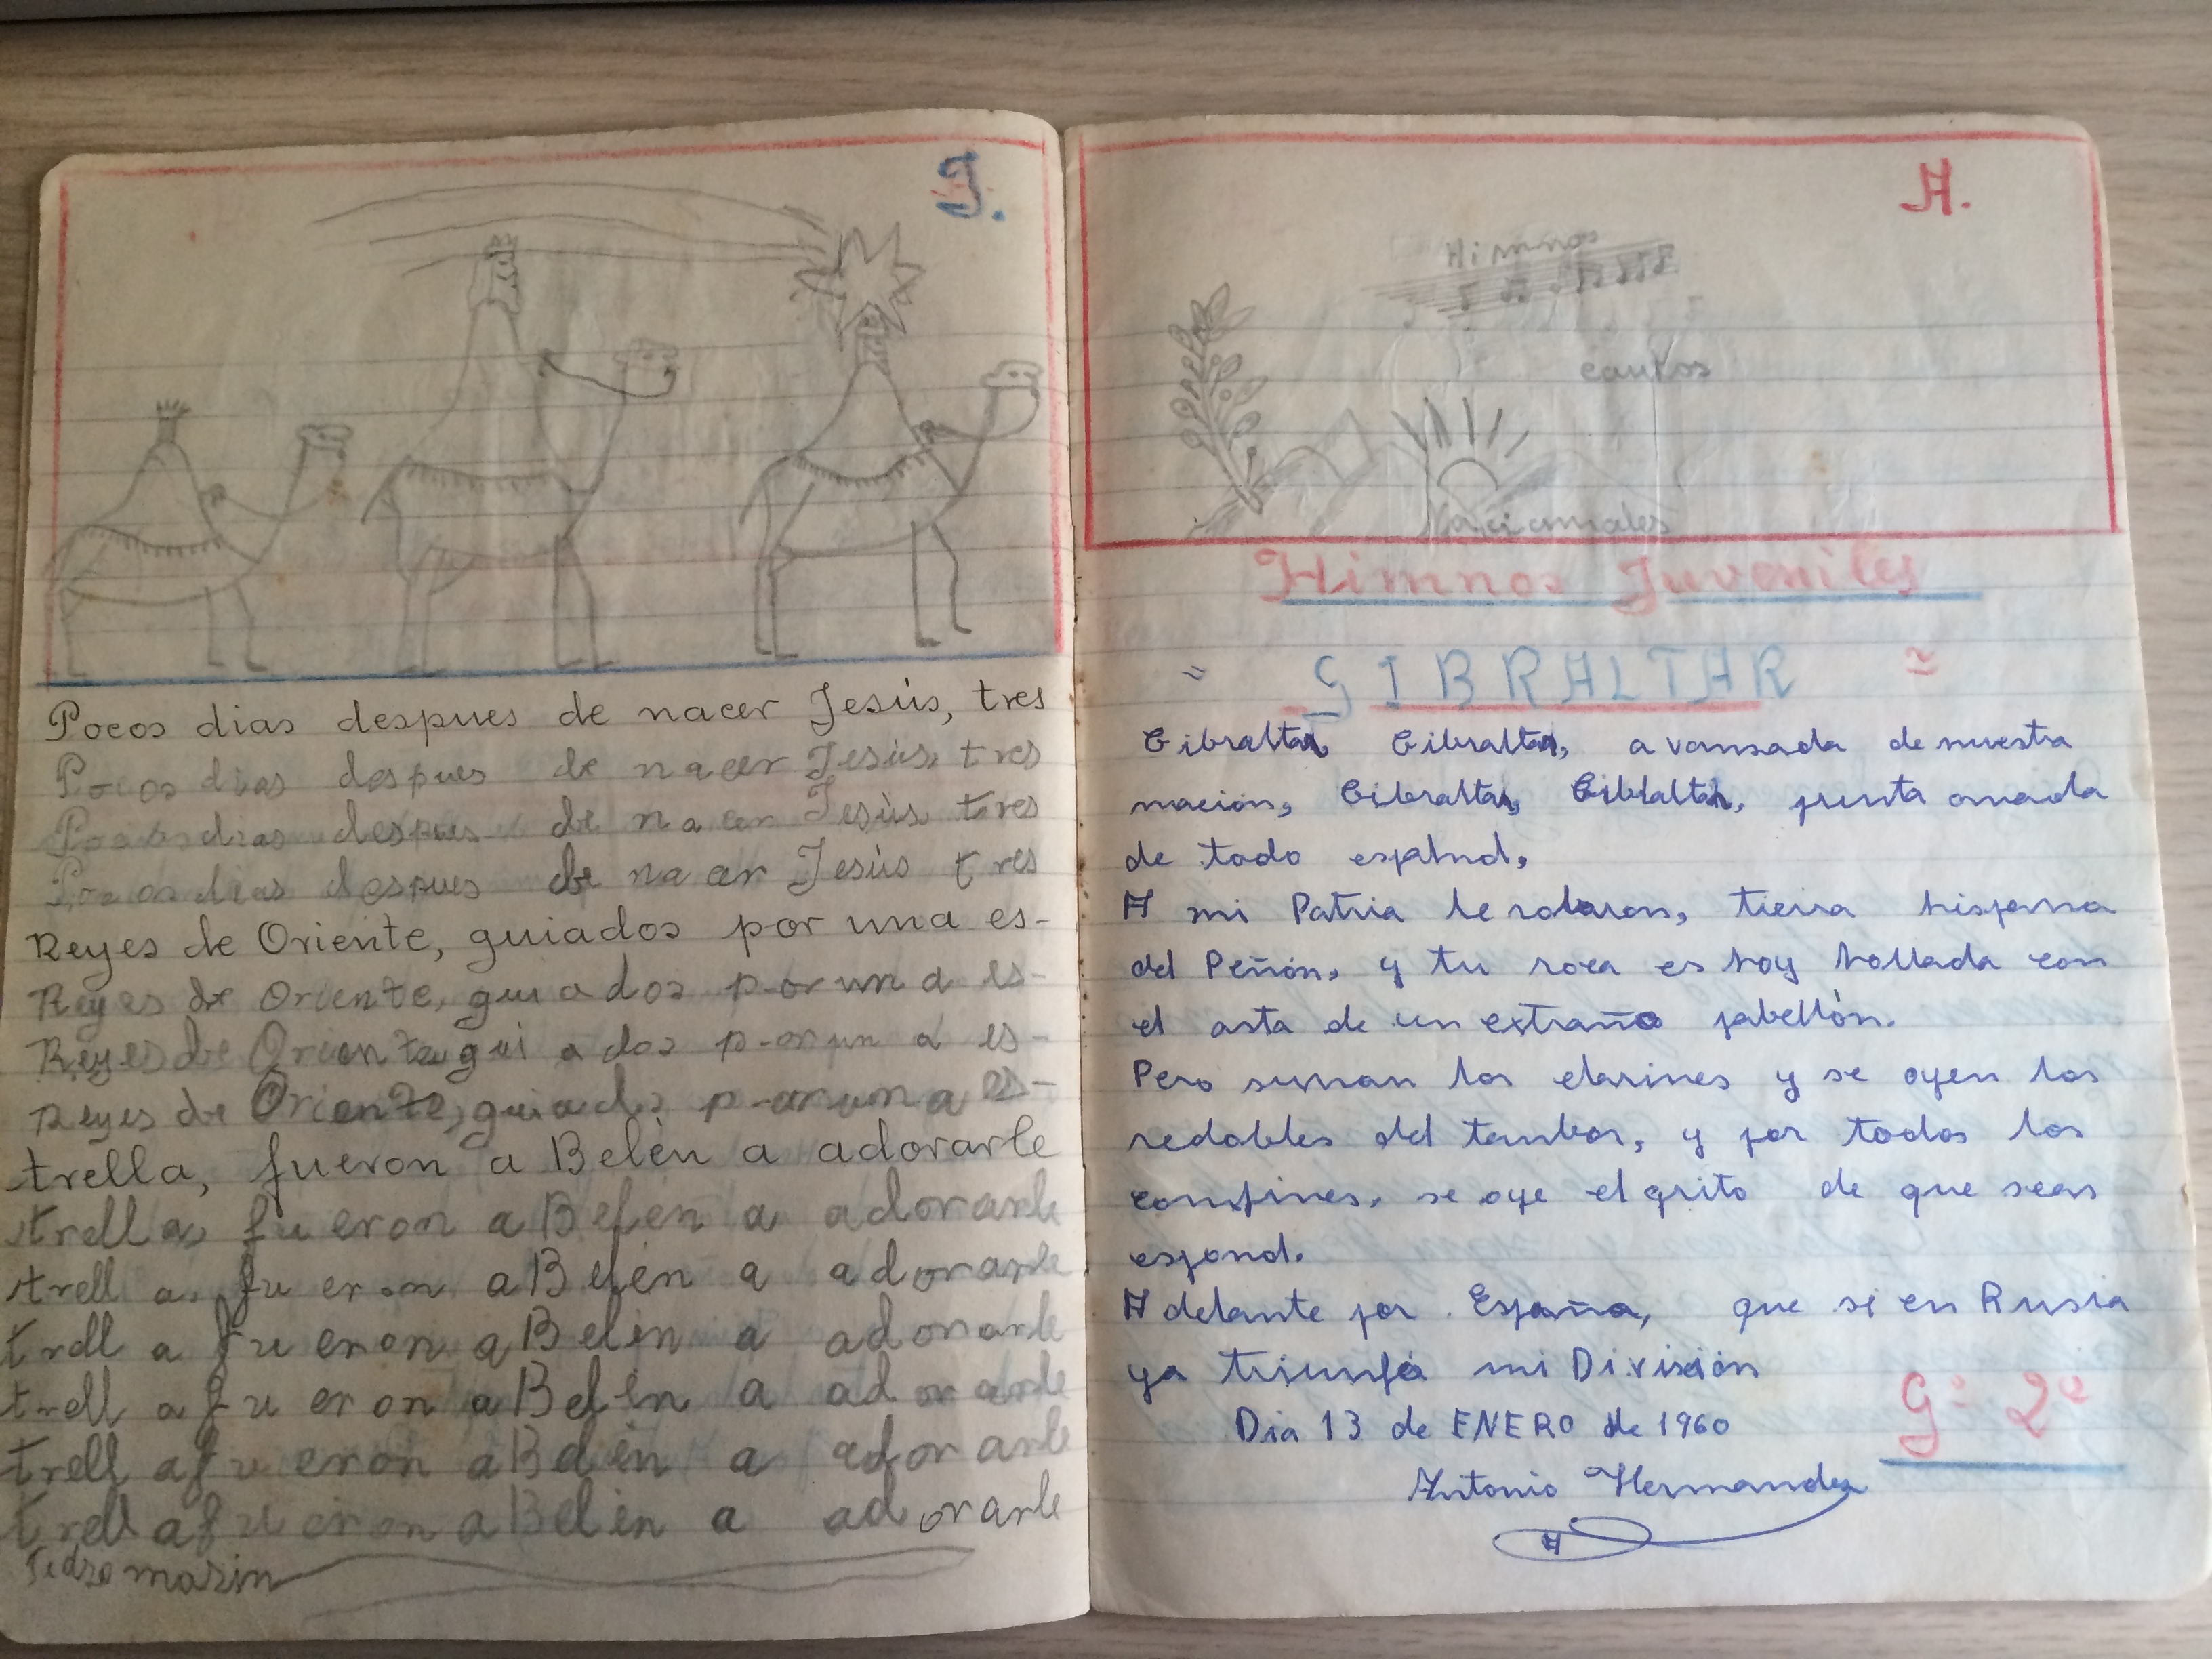 J.
Pocos dias despues de nacer Jesús, tres
Pocos dias despues de nacer Jesús, tres
Pocos dias despues de nacer Jesús, tres
Pocos dias despues de nacer Jesús tres
Reyes de Oriente, guiados por una es-
Reyes de Oriente, guiados por una es-
Reyes de Oriente guiados por una es-
Reyes de Oriente, guiados por una es-
trella, fueron a Belén a adorarle
trella, fueron a Belén a adorarle
trella, fueron a Belén a adorarle
trella fueron a Belen a adorarle
trella fueron a Belen a adorarle
trella fueron a Belen a adorarle
trella fueron a Belen a adorarle
Pedro marin
H.
Himnos
cantos
Nacionales
Himnos Juveniles
= GIBRALTAR =
Gibraltar, Gibraltar, avansada de nuestra
nación, Gibraltar, Gibraltar, punta amada
de todo español,
A mi Patria le robaron, tierra hispana
del Peñón, y tu roca es hoy hollada con
el asta de un extraño pabellón.
Pero suman los clarines y se oyen los
redobles del tambor, y por todos los
confines, se oye el grito de que seas
español.
Adelante por España, que si en Rusia
ya triunfó mi División
Dia 13 de ENERO de 1960
G: 2º
Antonio Hernandez
A